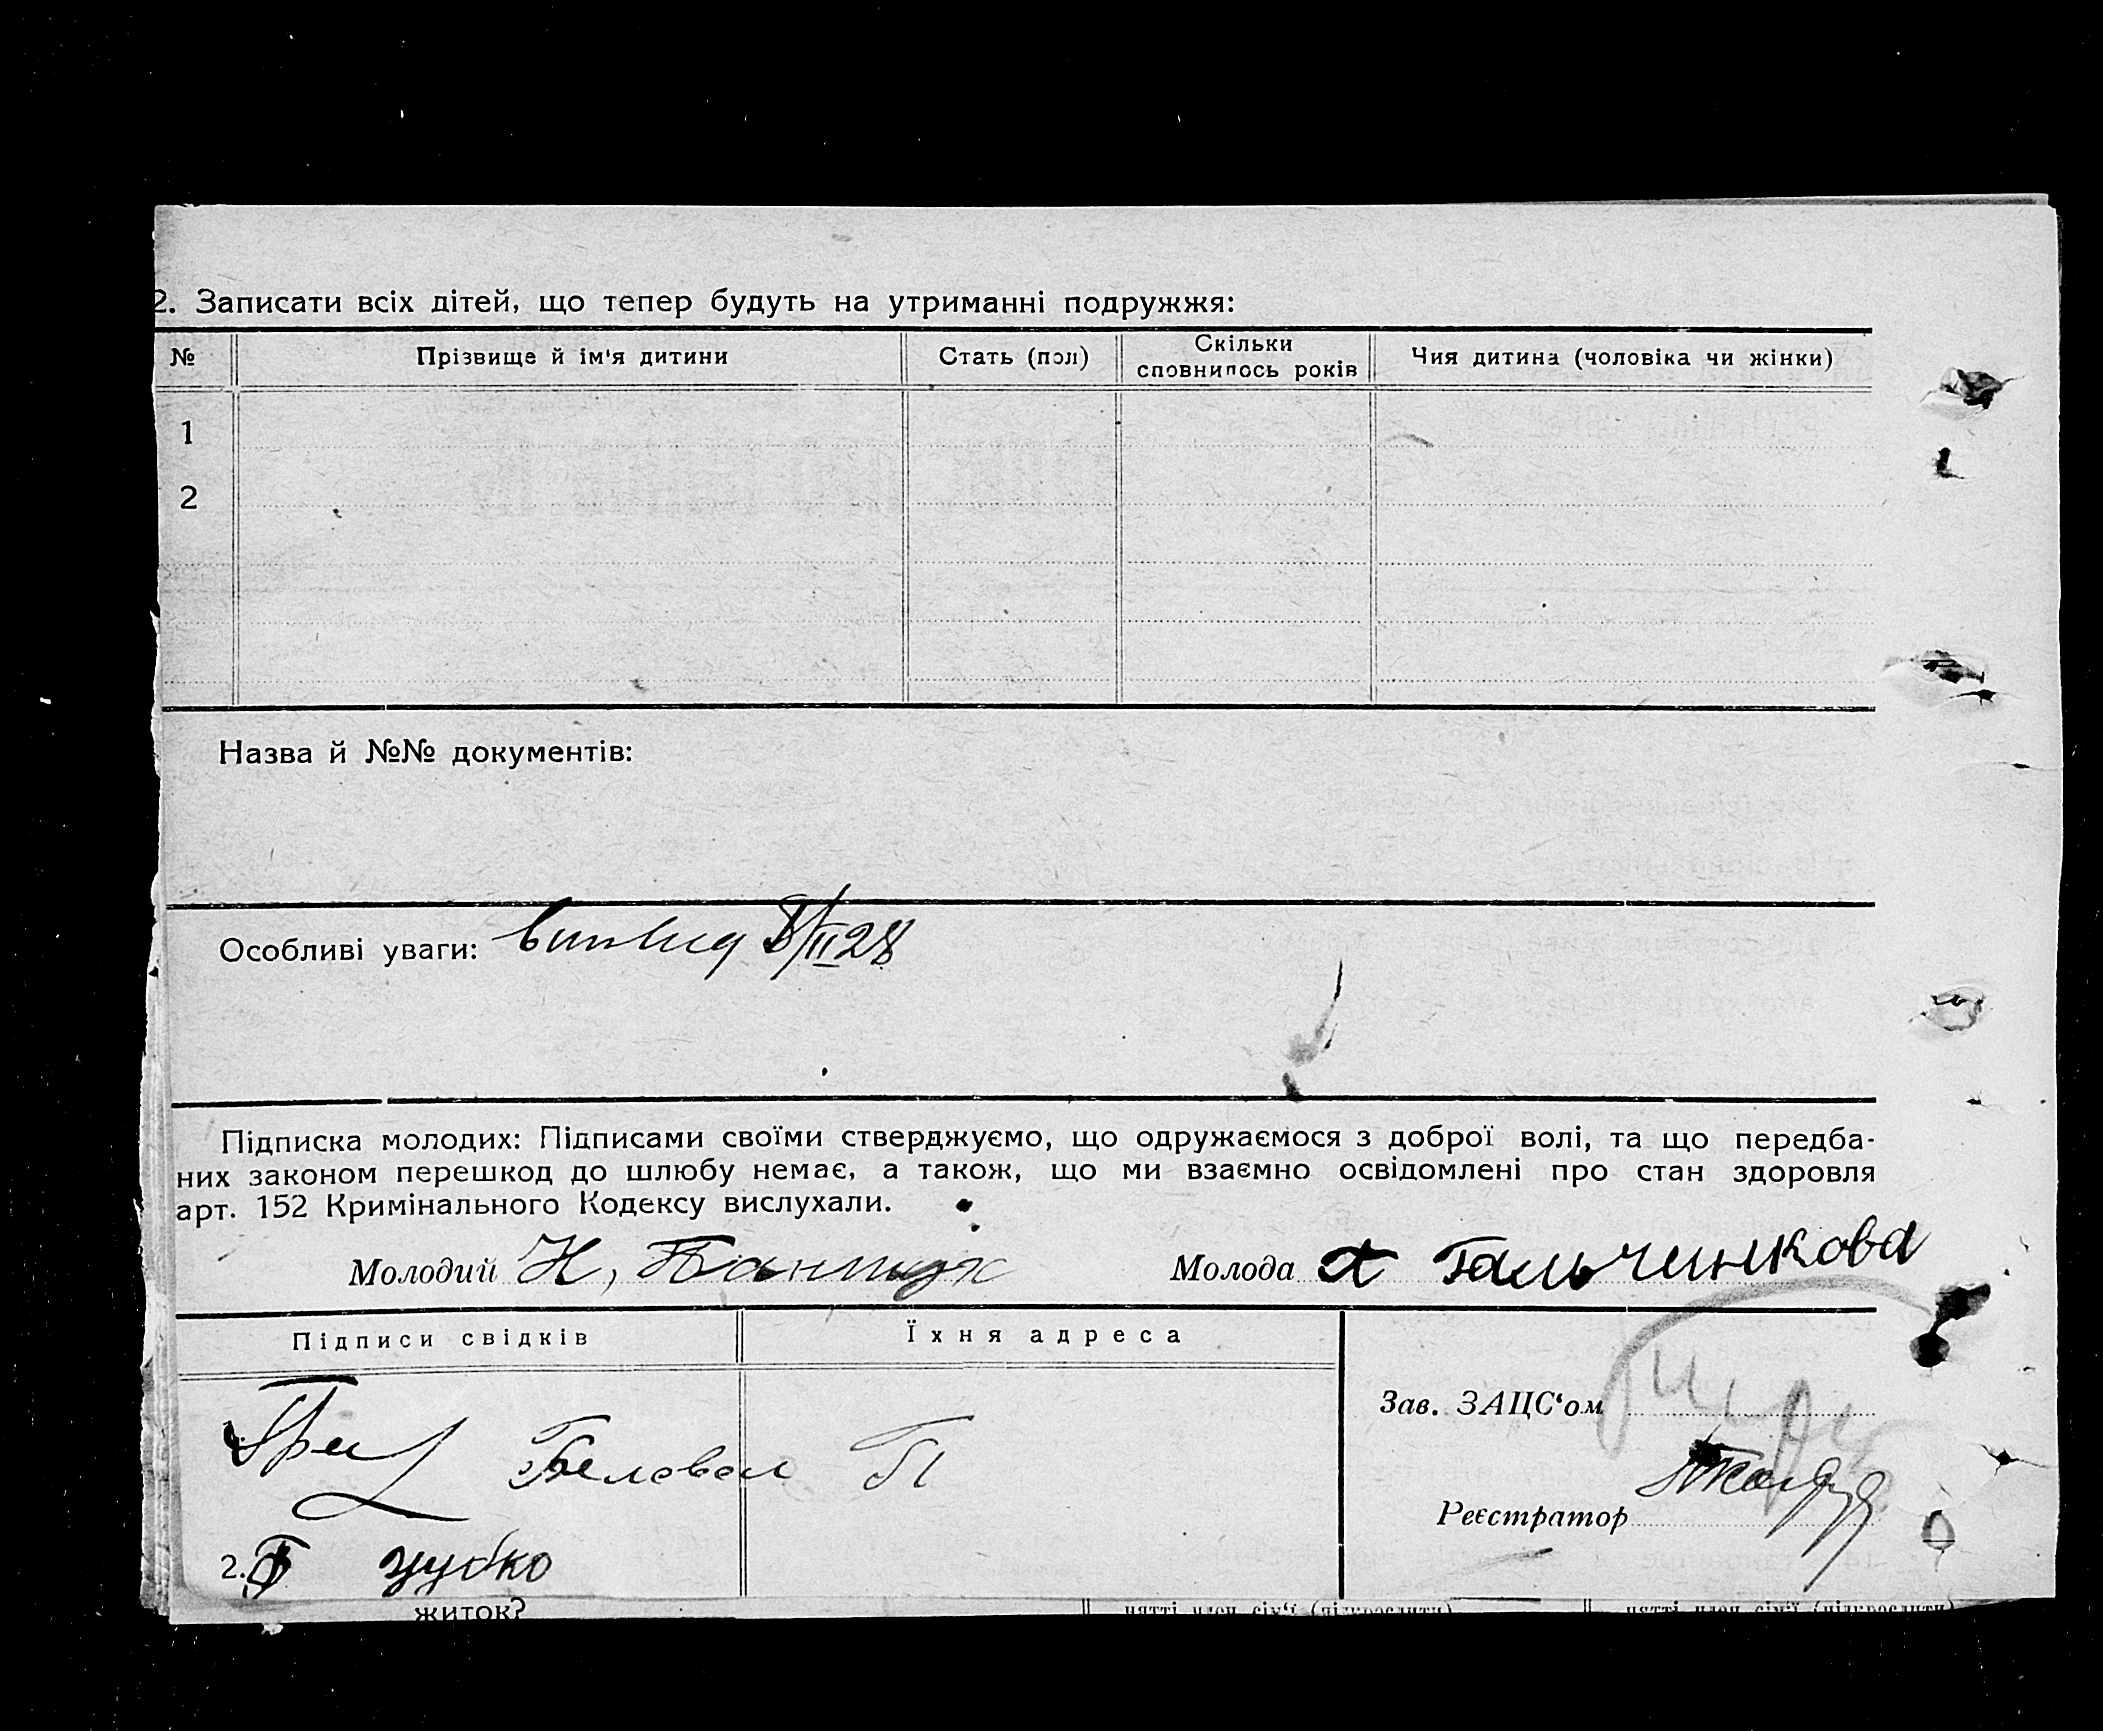 2. Записати всіх дітей, що тепер будуть на утриманні подружжя:
№ Прізвище й ім'я дитини Стать (пол) Скільки сповнилось років Чия дитина (чоловіка чи жінки)
1
2
Назва й №№ документів:
Особливі уваги: 8/II 28
Підписка молодих: Підписами своїми стверджуємо, що одружаємося з доброї волі, та що передба-
них законом перешкод до шлюбу немає, а також, що ми взаємно освідомлені про стан здоровля
арт. 152 Кримінального Кодексу вислухали.
Молодий Н, Молода А Гальчинкова
Підписи свідків Їхня адреса
Зав. ЗАЦС'ом
Беловол П
Реєстратор
2. зубко
житок?